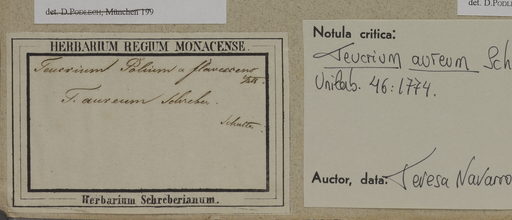 det. D.PODLECH, München 199
det. D.PODL
HERBARIUM REGIUM MONACENSE.
Teucrium Polium α flavescens
T. aureum Schreber.
Herbarium Schreberianum.
Notula critica:
Teucrium aureum Sch
Unilab. 46:1774.
Auctor, data: Teresa Navarro